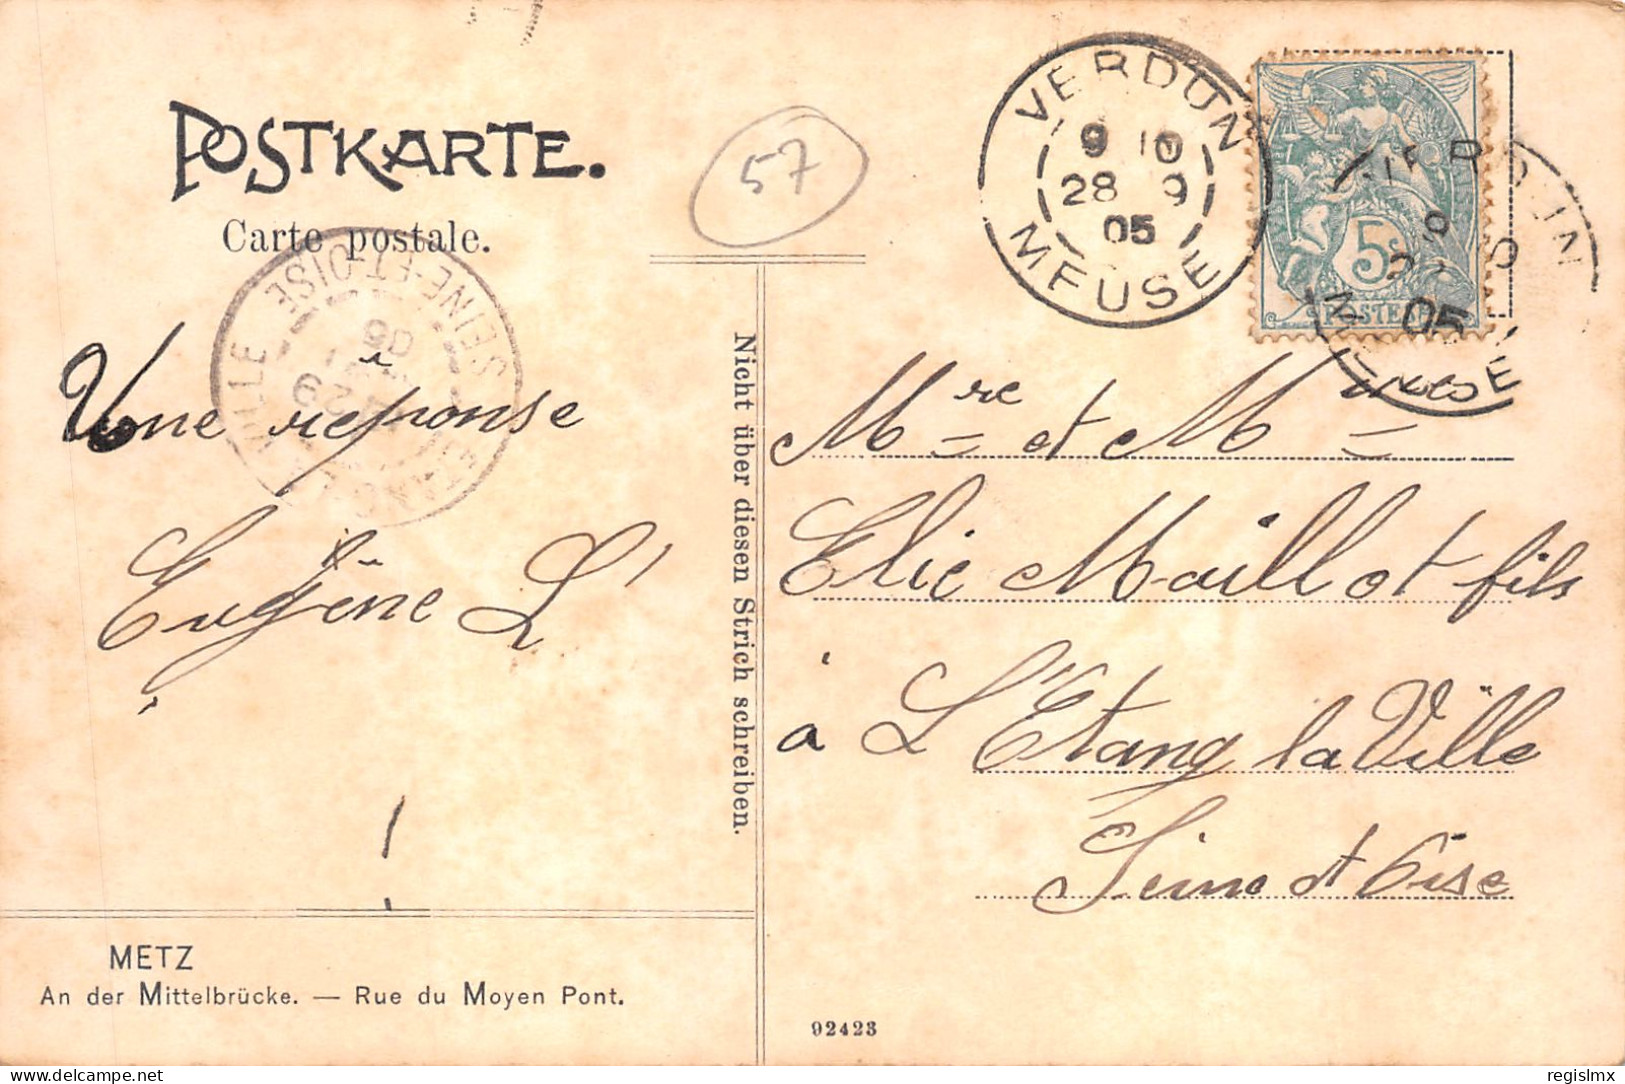 POSTKARTE.
Carte postale.
57
VERDUN
9 10
28 9
05
MEUSE
VERDUN
05
MEUSE
5c
POSTES
SEINE-ET-OISE
29
05
Une réponse
Eugène L'
!
Nicht über diesen Strich schreiben.
Mre et Mmes
Elie Maillot fils
à L'Etang la Ville
Seine et Oise
METZ
An der Mittelbrücke. — Rue du Moyen Pont.
92423
delcampe.net
regislmx